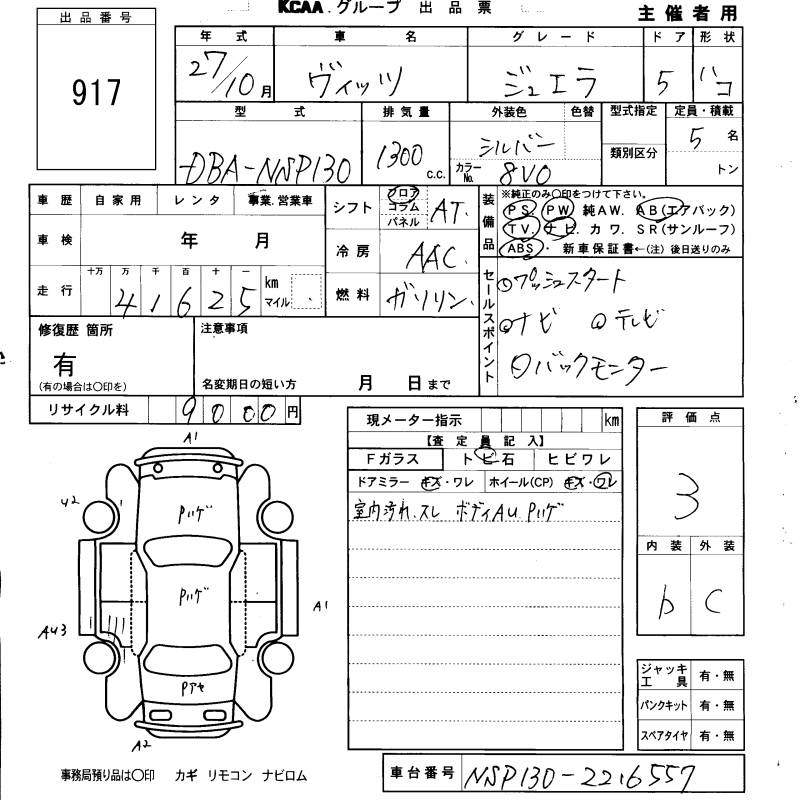 KCAA.グループ 出品票
主催者用
出品番号
917
年式 車名 グレード ドア 形状
27/10月 ヴィッツ ジュエラ 5 ハコ
型式 排気量 外装色 色替 型式指定 定員・積載
DBA-NSP130 1300 c.c. シルバー カラーNo. 8V0 類別区分 5名 トン
車歴 自家用 レンタ 事業.営業車
シフト フロア コラム パネル AT.
装備品 ※純正のみ○印をつけて下さい。
PS. PW 純AW. AB(エアバック)
TV. ナビ. カワ. SR(サンルーフ)
ABS・ 新車保証書←(注) 後日送りのみ
車検 年 月
冷房 AAC.
走行 十万 万 千 百 十 一 km マイル
41625
燃料 ガソリン.
セールスポイント
①プッシュスタート
○ナビ ○テレビ
○バックモニター
修復歴 箇所
有
(有の場合は○印を)
注意事項
名変期日の短い方 月 日まで
リサイクル料 9000円
現メーター指示 km
【査定員記入】
Fガラス トビ石 ヒビワレ
ドアミラー キズ・ワレ ホイール(CP) キズ・ワレ
室内汚れ.スレ ボディAU.Pハゲ
評価点
3
内装 外装
b C
A1
U2
Pハゲ
Pハゲ
A1
AU3
Pアセ
A2
ジャッキ工具 有・無
パンクキット 有・無
スペアタイヤ 有・無
事務局預り品は○印 カギ リモコン ナビロム
車台番号 NSP130-2216557